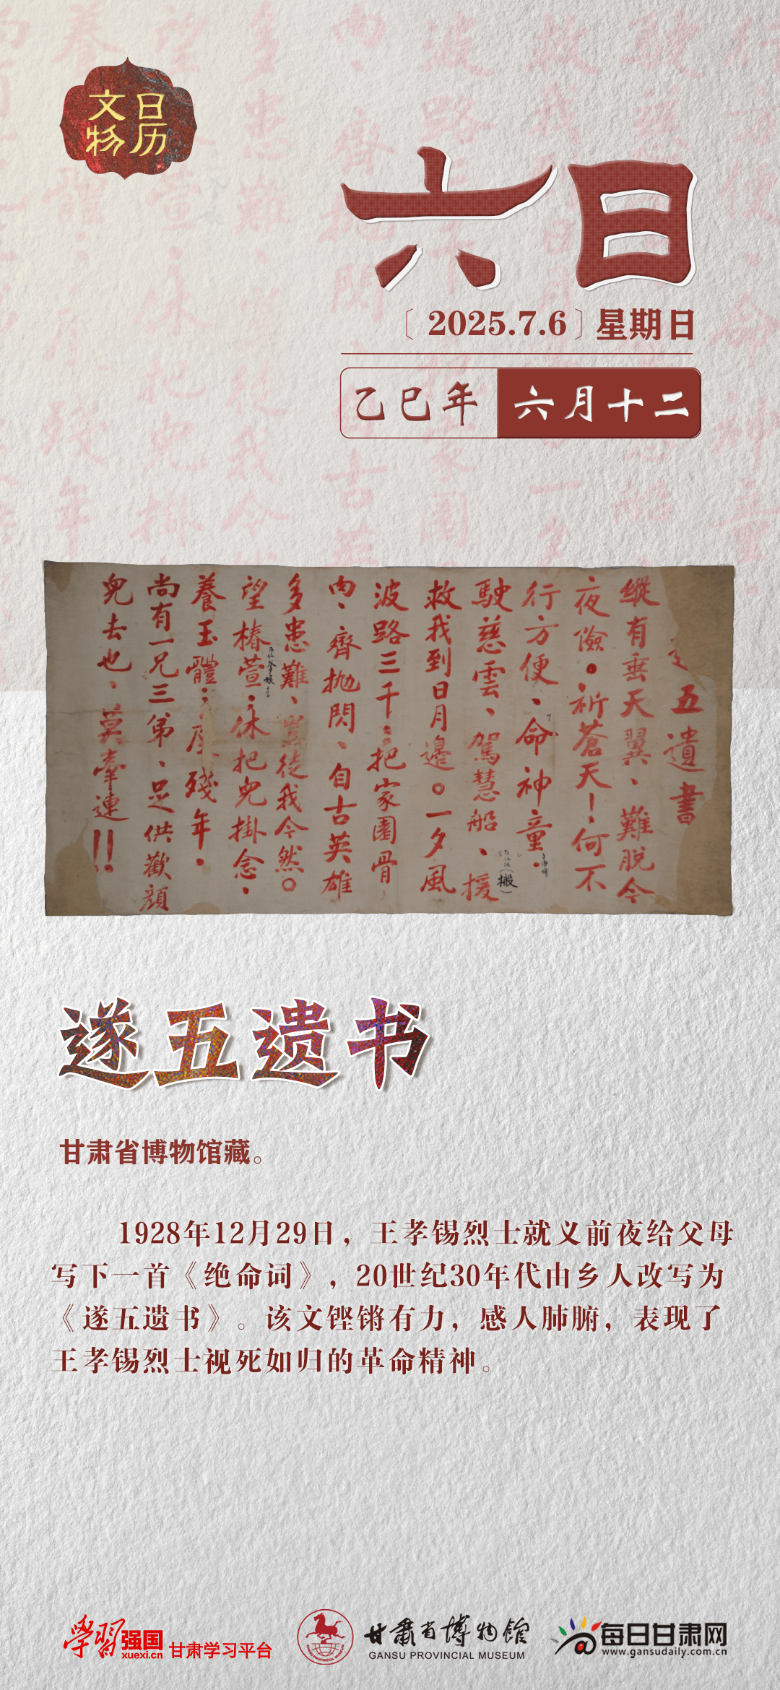 文物
日历
六日
〔2025.7.6〕星期日
乙巳年 六月十二
五遺書
縱有垂天翼、難脱今
夜險。祈蒼天！何不
行方便、命神童.
駛慈雲、駕慧船、援
(搬)
救我到日月邊。一夕風
波路三千.把家園骨
肉、齊抛閃、自古英雄
多患難、豈徒我今然。
望椿萱.休把兒掛念、
養玉體.度殘年.
尚有一兄三弟、足供歡顔
兒去也、莫牽連!!
遂五遗书
甘肃省博物馆藏。
1928年12月29日，王孝锡烈士就义前夜给父母
写下一首《绝命词》，20世纪30年代由乡人改写为
《遂五遗书》。该文铿锵有力，感人肺腑，表现了
王孝锡烈士视死如归的革命精神。
学习强国
xuexi.cn
甘肃学习平台
甘肃省博物馆
GANSU PROVINCIAL MUSEUM
每日甘肃网
www.gansudaily.com.cn